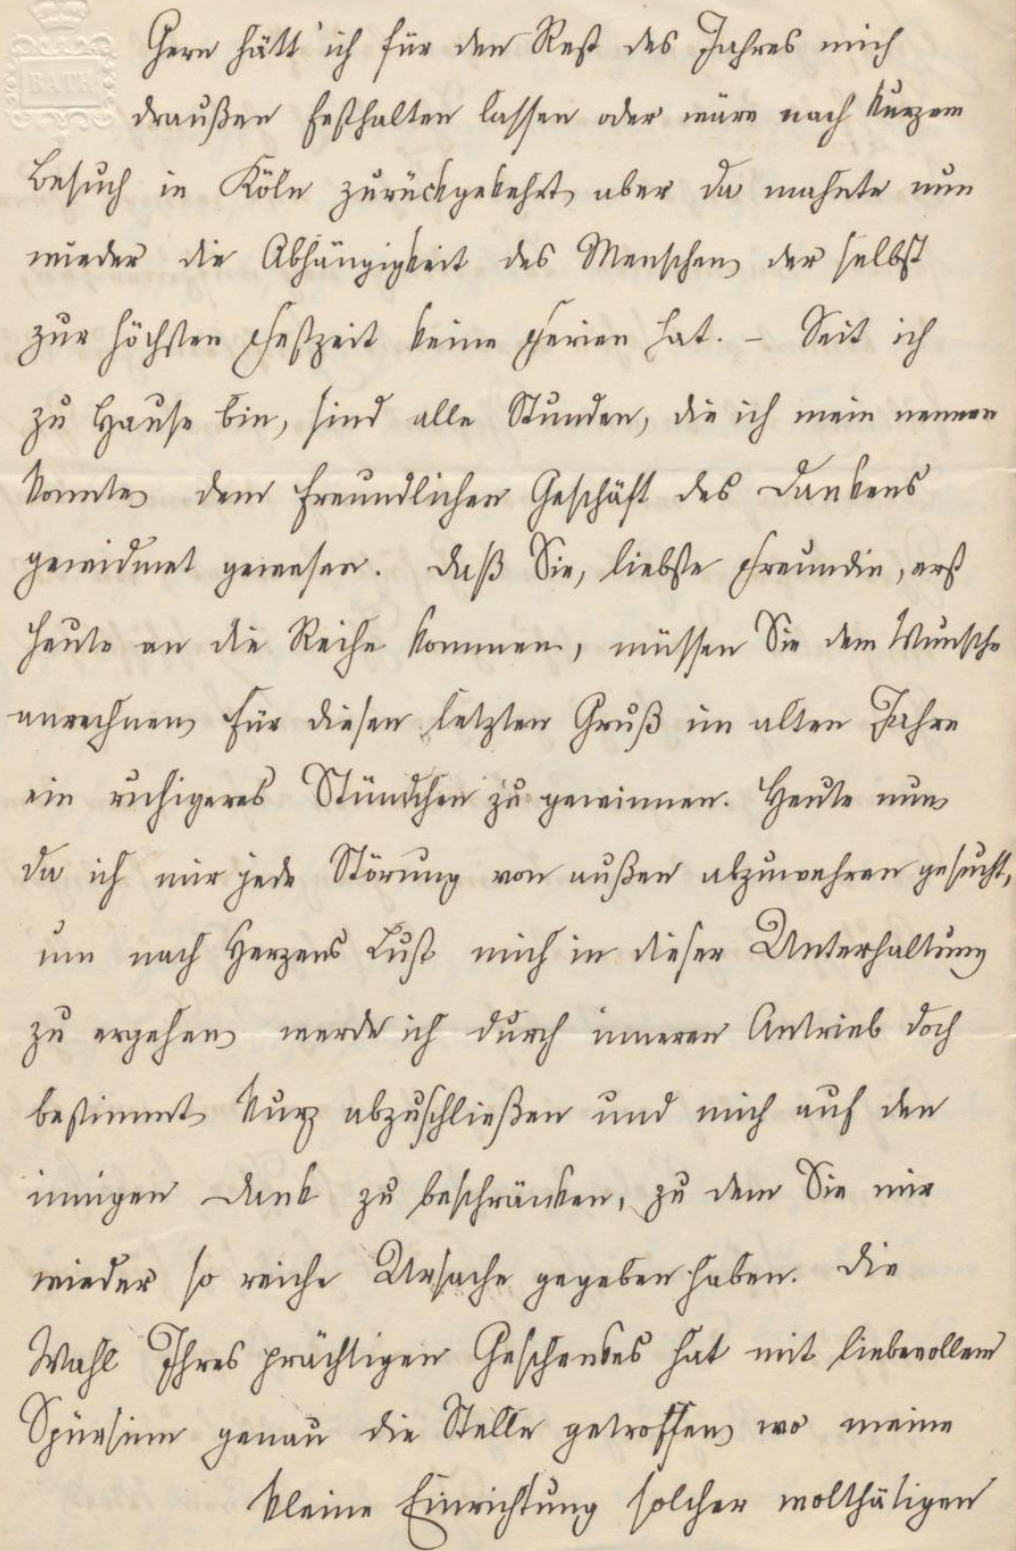 BATH
Gern hätt' ich für den Rest des Jahres mich
draußen festhalten lassen oder wäre nach kurzem
Besuch in Köln zurückgekehrt, aber da mahnte nun
wieder die Abhängigkeit des Menschen, der selbst
zur höchsten Festzeit keine Ferien hat. – Seit ich
zu Hause bin, sind alle Stunden, die ich mein nennen
konnte, dem freundlichen Geschäft des Dankens
gewidmet gewesen. Daß Sie, liebste Freundin, erst
heute an die Reihe kommen, müssen Sie dem Wunsche
anrechnen, für diesen letzten Gruß im alten Jahre
ein ruhigeres Stündchen zu gewinnen. Heute nun,
da ich mir jede Störung von außen abzuwehren gesucht,
um nach Herzens Lust mich in dieser Unterhaltung
zu ergehen, werde ich durch inneren Antrieb doch
bestimmt, kurz abzuschließen und mich auf den
innigen Dank zu beschränken, zu dem Sie mir
wieder so reiche Ursache gegeben haben. Die
Wahl Ihres prächtigen Geschenkes hat mit liebevollem
Spürsinn genau die Stelle getroffen, wo meine
kleine Einrichtung solcher wolthätigen